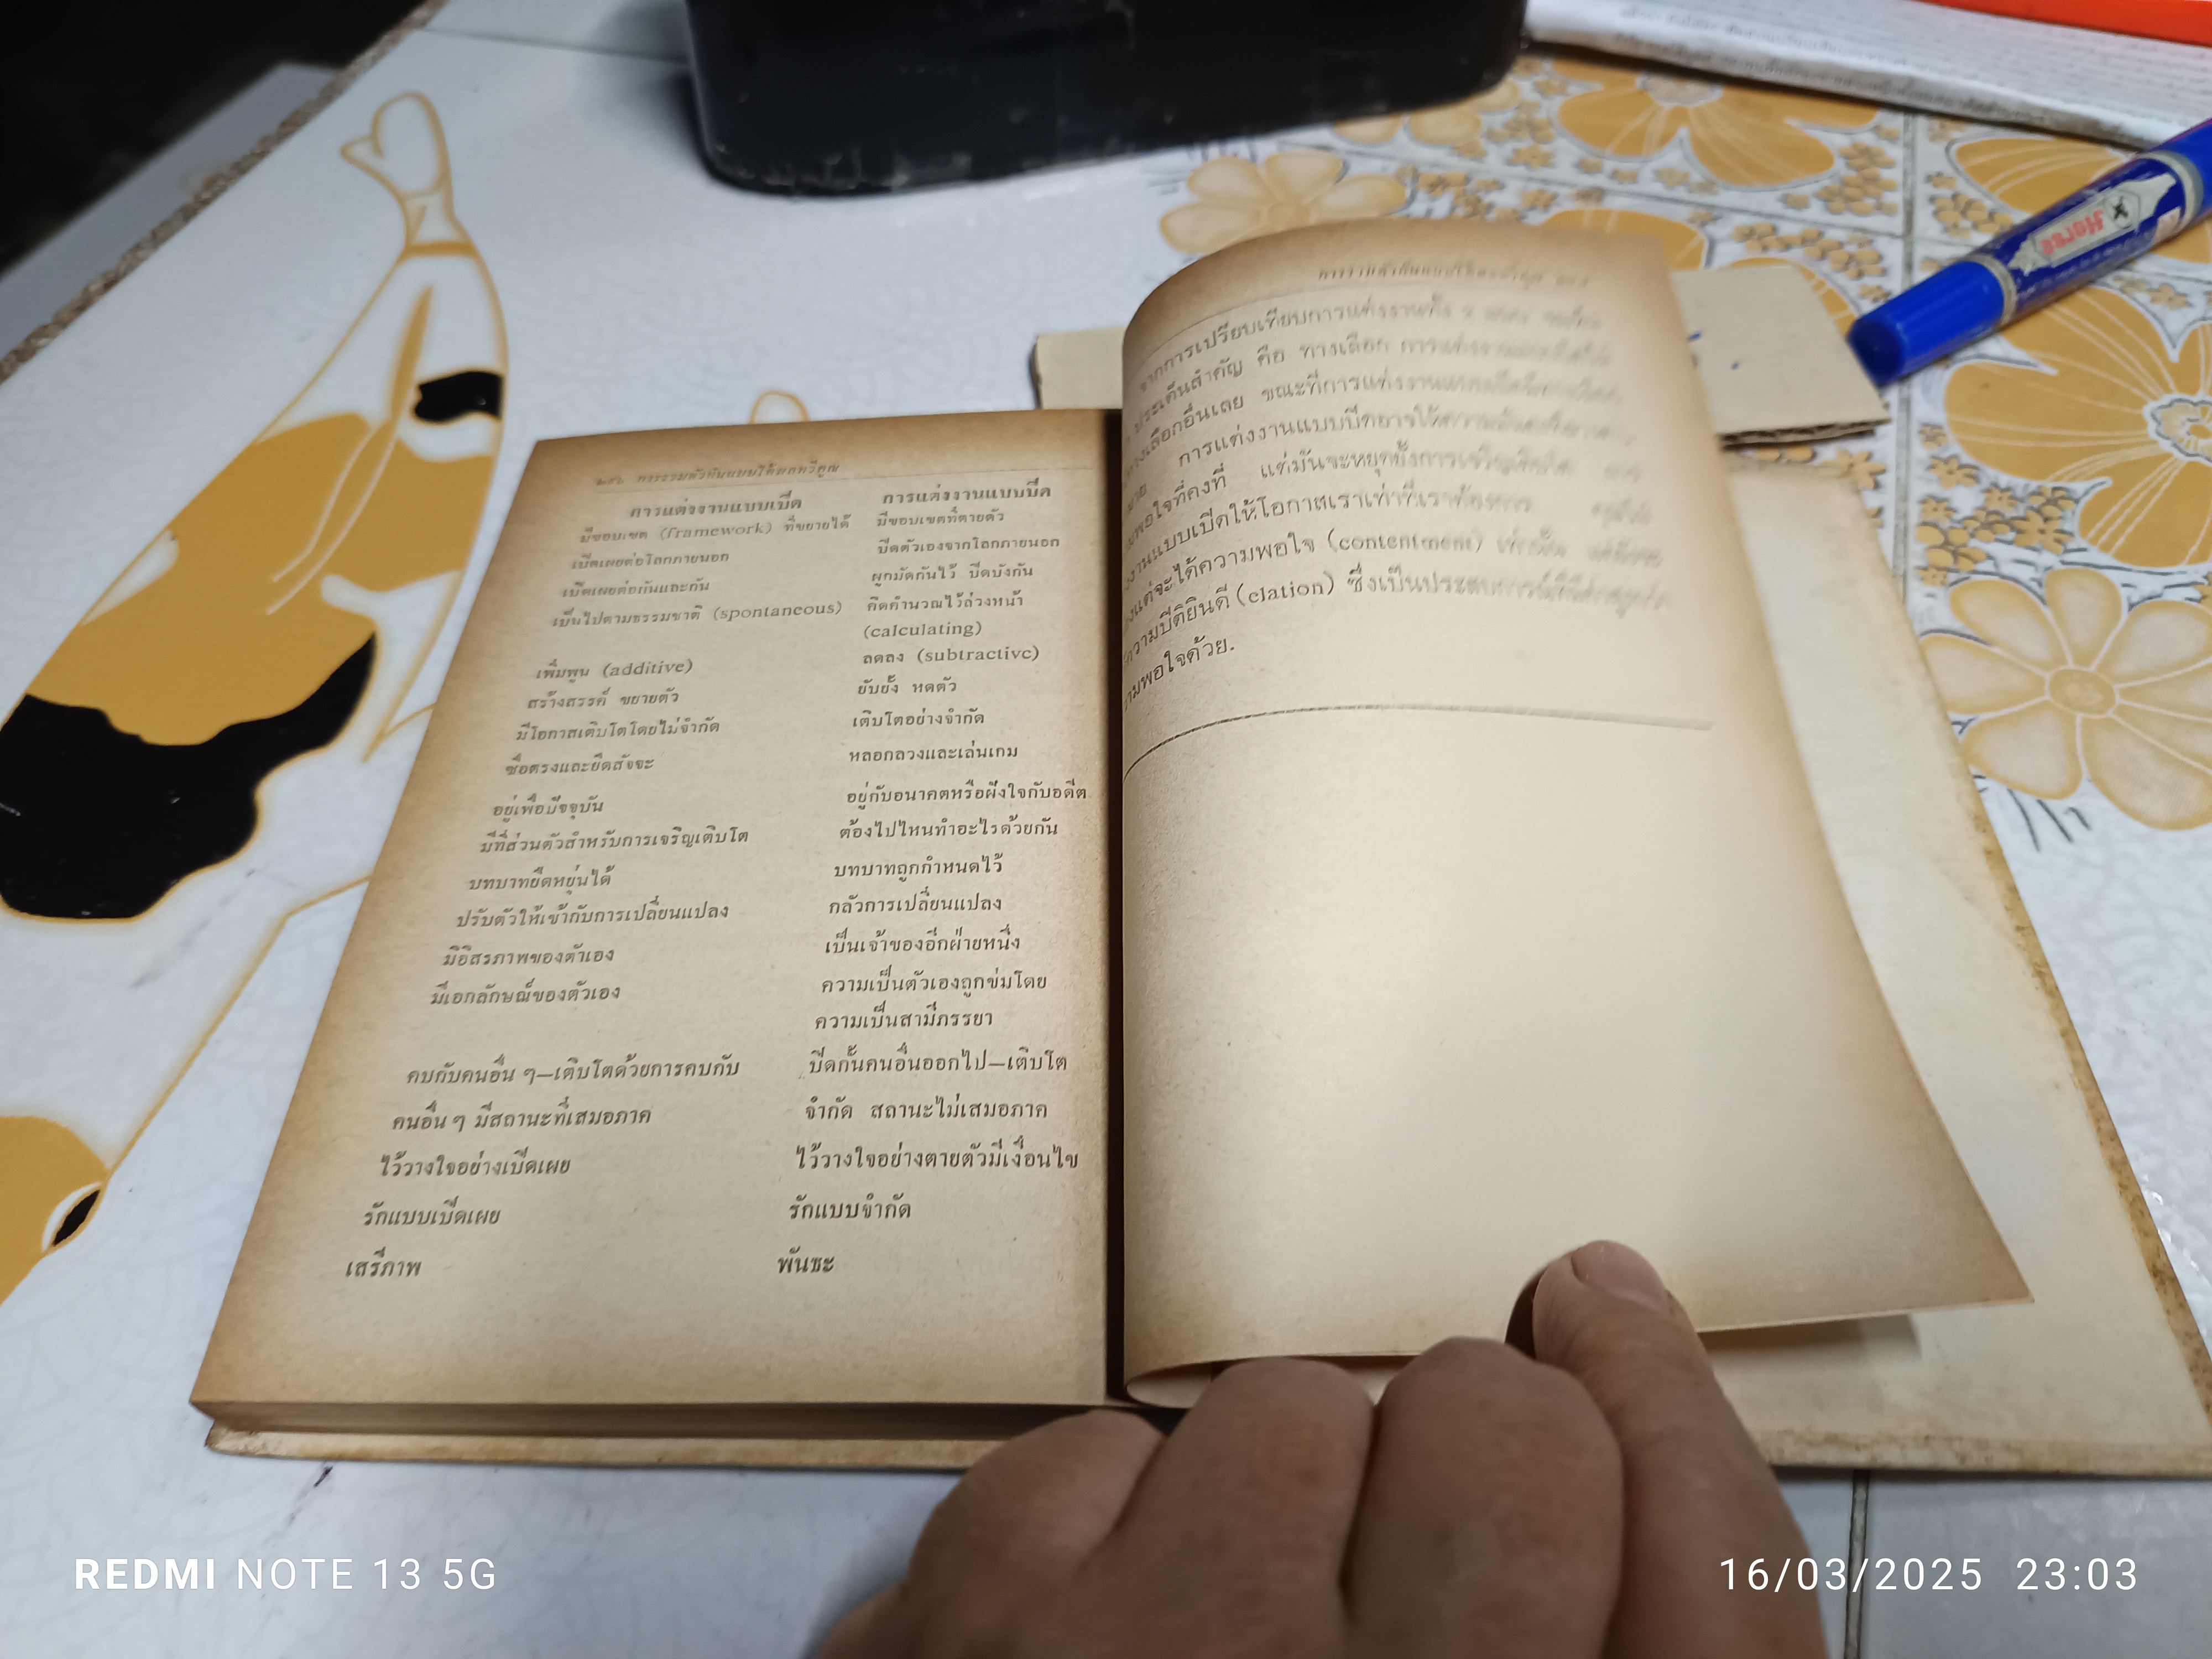 ๒๕๖ การรวมตัวกันแบบได้ผลทวีคูณ
การแต่งงานแบบเปิด
การแต่งงานแบบปิด
มีขอบเขต (framework) ที่ขยายได้
มีขอบเขตที่ตายตัว
เปิดเผยต่อโลกภายนอก
ปิดตัวเองจากโลกภายนอก
เปิดเผยต่อกันและกัน
ผูกมัดกันไว้ ปิดบังกัน
เป็นไปตามธรรมชาติ (spontaneous)
คิดคำนวณไว้ล่วงหน้า
(calculating)
เพิ่มพูน (additive)
ลดลง (subtractive)
สร้างสรรค์ ขยายตัว
ยับยั้ง หดตัว
มีโอกาสเติบโตโดยไม่จำกัด
เติบโตอย่างจำกัด
ซื่อตรงและยึดสัจจะ
หลอกลวงและเล่นเกม
อยู่เพื่อปัจจุบัน
อยู่กับอนาคตหรือฝังใจกับอดีต
มีที่ส่วนตัวสำหรับการเจริญเติบโต
ต้องไปไหนทำอะไรด้วยกัน
บทบาทยืดหยุ่นได้
บทบาทถูกกำหนดไว้
ปรับตัวให้เข้ากับการเปลี่ยนแปลง
กลัวการเปลี่ยนแปลง
มีอิสรภาพของตัวเอง
เป็นเจ้าของอีกฝ่ายหนึ่ง
มีเอกลักษณ์ของตัวเอง
ความเป็นตัวเองถูกข่มโดย
ความเป็นสามีภรรยา
คบกับคนอื่น ๆ—เติบโตด้วยการคบกับ
ปิดกั้นคนอื่นออกไป—เติบโต
คนอื่น ๆ มีสถานะที่เสมอภาค
จำกัด สถานะไม่เสมอภาค
ไว้วางใจอย่างเปิดเผย
ไว้วางใจอย่างตายตัวมีเงื่อนไข
รักแบบเปิดเผย
รักแบบจำกัด
เสรีภาพ
พันธะ
การรวมตัวกันแบบได้ผลทวีคูณ
จากการเปรียบเทียบการแต่งงานทั้ง ๒ แบบ
ประเด็นสำคัญ คือ ทางเลือก การแต่งงาน
ทางเลือกอื่นเลย ขณะที่การแต่งงานแบบเปิด
การแต่งงานแบบปิดอาจให้ความ
พอใจที่คงที่ แต่มันจะหยุดยั้งการเจริญเติบโต
งานแบบเปิดให้โอกาสเราเท่าที่เราต้องการ
แต่จะได้ความพอใจ (contentment) เท่านั้น
ความปีติยินดี (elation) ซึ่งเป็นประสบการณ์
พอใจด้วย.
Horse
REDMI NOTE 13 5G
16/03/2025 23:03